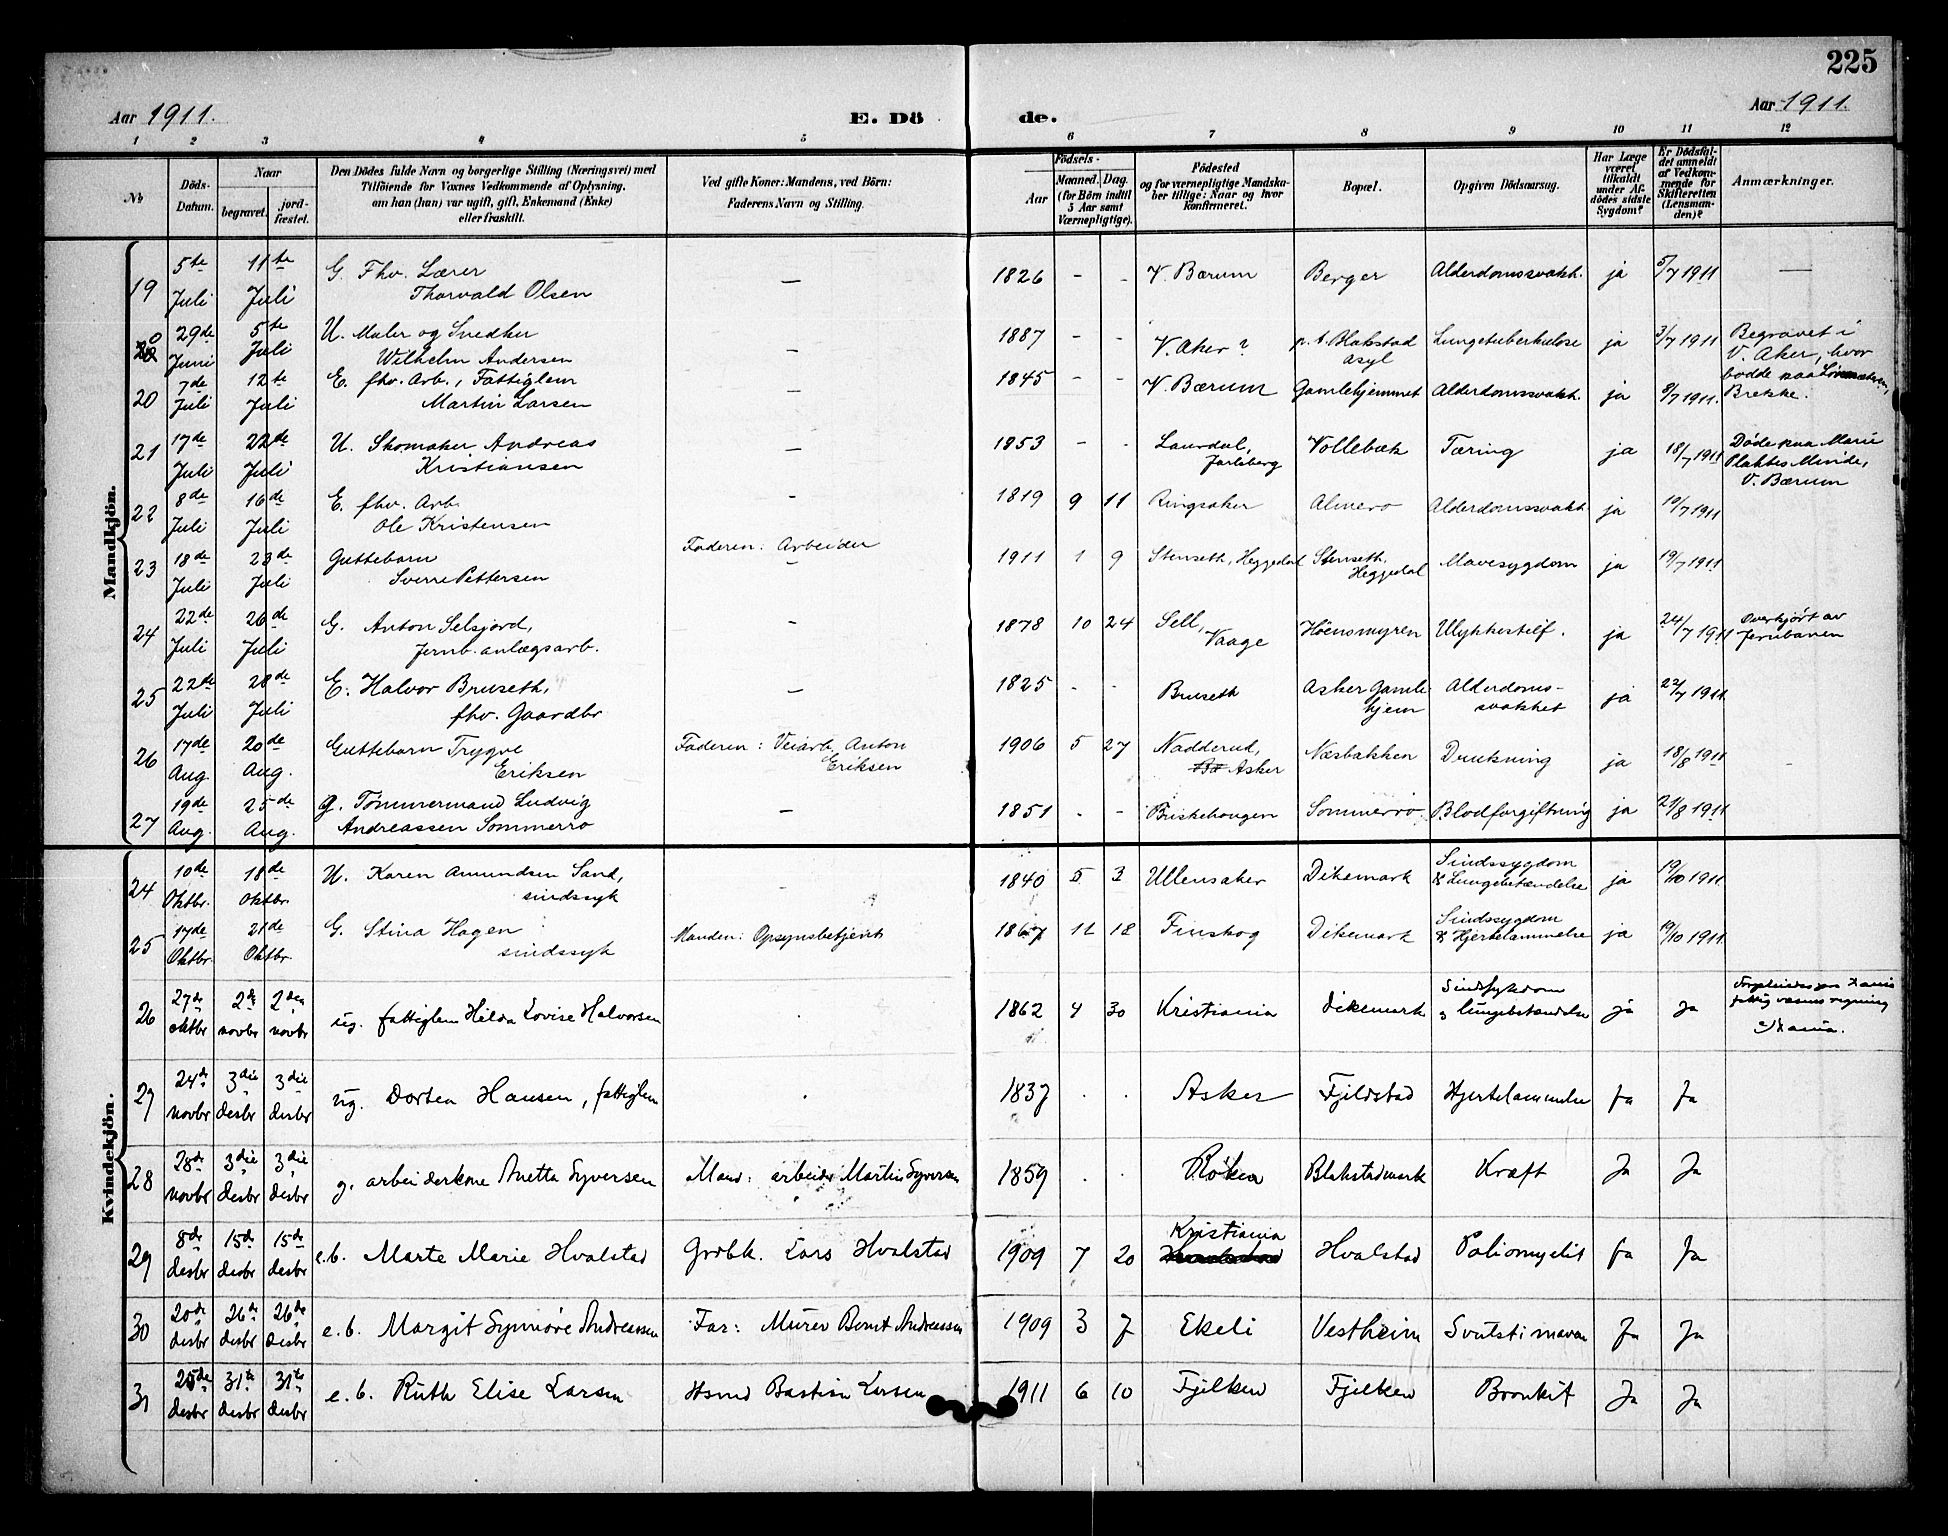 225
Aar 1911. E. Dö de. Aar 1911.
1 2 3 4 5 6 7 8 9 10 11 12
No
Döds-Datum.
Naar
begravet.
jordfæstet.
Den Dödes fulde Navn og borgerlige Stilling (Næringsvei) med
Tilföiende for Voxnes Vedkommende af Oplysning,
om han (hun) var ugift, gift, Enkemand (Enke)
eller fraskilt.
Ved gifte Koner: Mandens, ved Börn:
Faderens Navn og Stilling.
Födsels-
Aar
Maaned. Dag.
(for Börn indtil
5 Aar samt
Værnepligtige).
Födested
og for værnepligtige Mandska-
ber tillige: Naar og hvor
konfirmeret.
Bopæl.
Opgiven Dödsaarsag.
Har Læge
været
tilkaldt
under Af-
dödes sidste
Sygdom?
Er Dödsfal-
det anmeldt
af Vedkom-
mende for
Skifteretten
(Lensman-
den)?
Anmærkninger.
Mandkjön.
19 5te Juli 11te Juli G. Fhv. Lærer Thorvald Olsen — 1826 - - V. Bærum Berger Alderdomssvakh. ja 5/7 1911 —
20 29de Juni 5te Juli U. Maler og Snedker Wilhelm Andersen — 1887 - - V. Aker? p.t. Blakstad Asyl Lungetuberkulose ja 3/7 1911 Begravet i V. Aker, hvor bodde paa Brekke.
20 7de Juli 12te Juli E. fhv. Arb., Fattiglem Martin Larsen — 1845 - - V. Bærum Gamlehjemmet Alderdomssvakh. ja 8/7 1911.
21 17de Juli 22de Juli U. Skomaker Andreas Kristiansen — 1853 - - Laurdal, Jarlsberg Vollebæk Tæring ja 18/7 1911 Döde paa Marie Plahtes Minde, V. Bærum
22 8de Juli 16de Juli E. fhv. Arb. Ole Kristensen - 1819 9 11 Ringsaker Almero Alderdomssvakh ja 10/7 1911
23 18de Juli 23de Juli Guttebarn Sverre Pettersen Faderen: Arbeider — 1911 1 9 Stenseth, Heggedal Stenseth, Heggedal Mavesygdom ja 19/7 1911
24 22de Juli 26de Juli G. Anton Selsjord, Jernb. anlægsarb. - 1878 10 24 Sell, Vaage Höensmyren Ulykkestilf. ja 24/7 1911 Overkjört av Jernbanen
25 22de Juli 28de Juli E. Halvor Bruseth, fhv. Gaardbr — 1825 - - Bruseth Asker Gamlehjem Alderdoms-svakhet ja 22/7 1911
26 17de Aug. 20de Aug. Guttebarn Trygve Eriksen Faderen: Veiarb. Anton Eriksen 1906 5 27 Nadderud, Asker Næsbakken Drukning ja 18/8 1911 -
27 19de Aug. 25de Aug. G. Tömmermand Ludvig Andreassen Sommerro — 1851 . - Briskehaugen Sommerro Blodforgiftning ja 21/8 1911
Kvindekjön.
24 10de Oktbr. 18de Oktbr. U. Karen Amundsen Sand, sindssyk - 1840 5 3 Ullensaker Dikemark Sindssygdom & Lungebetændelse ja 19/10 1911
25 17de Oktbr. 21de Oktbr. G. Stina Hagen sindssyk Manden: Opsynsbetjent 1867 11 18 Finskog Dikemark Sindssygdom & Hjertelammelse ja 19/10 1911.
26 27de oktbr 2de novbr 2den novbr ug. fattiglem Hilda Lovise Halvorsen . 1862 4 30 Kristiania Dikemark Sindsygdom & lungebetændelse ja Ja
27 24de novbr 3die desbr 3die desbr ug. Dorten Hansen, fattiglem . 1837 . . Asker Fjeldstad Hjertelammelse Ja Ja
28 28de novbr 3die desbr 3die desbr g. arbeiderkone Anetta Syversen Mand: arbeider Martin Syversen 1859 . . Röken Blakstadmark Kræft Ja Ja
29 8de desbr 15de desbr 15de desbr e.b. Marte Marie Hvalstad Grdbk. Lars Hvalstad 1909 7 20 Kristiania Hvalstad Poliomyelit Ja Ja
30 20de desbr 26de desbr 26de desbr e.b. Margit Synnöve Andreassen Far: Murer Bernt Andreassen 1909 3 7 Ekeli Vestheim Svulst i maven Ja Ja
31 25de desbr 31te desbr 31te desbr e.b. Ruth Elise Larsen Bastian Larsen 1911 6 10 Fjelken Fjelken Bronkit Ja Ja